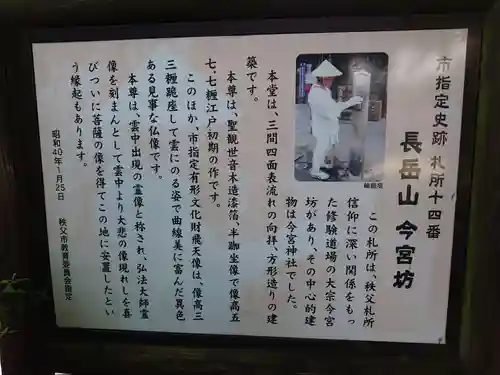 市指定史跡 札所十四番
長岳山 今宮坊
この札所は、秩父札所
信仰に深い関係をもっ
た修験道場の大宗今宮
坊があり、その中心的建
物は今宮神社でした。
本堂は、三間四面表流れの向拝、方形造りの建
築です。
本尊は、聖観世音木造漆箔、半跏坐像で像高五
七、七糎江戸初期の作です。
このほか、市指定有形文化財飛天像は、像高三
三糎跪座して雲にのる姿で曲線美に富んだ異色
ある見事な仏像です。
本尊は、雲中出現の霊像と称され、弘法大師霊
像を刻まんとして雲中より大悲の像現れしを喜
びついに菩薩の像を得てこの地に安置したとい
う縁起もあります。
昭和40年1月25日 秩父市教育委員会指定
輪廻塔